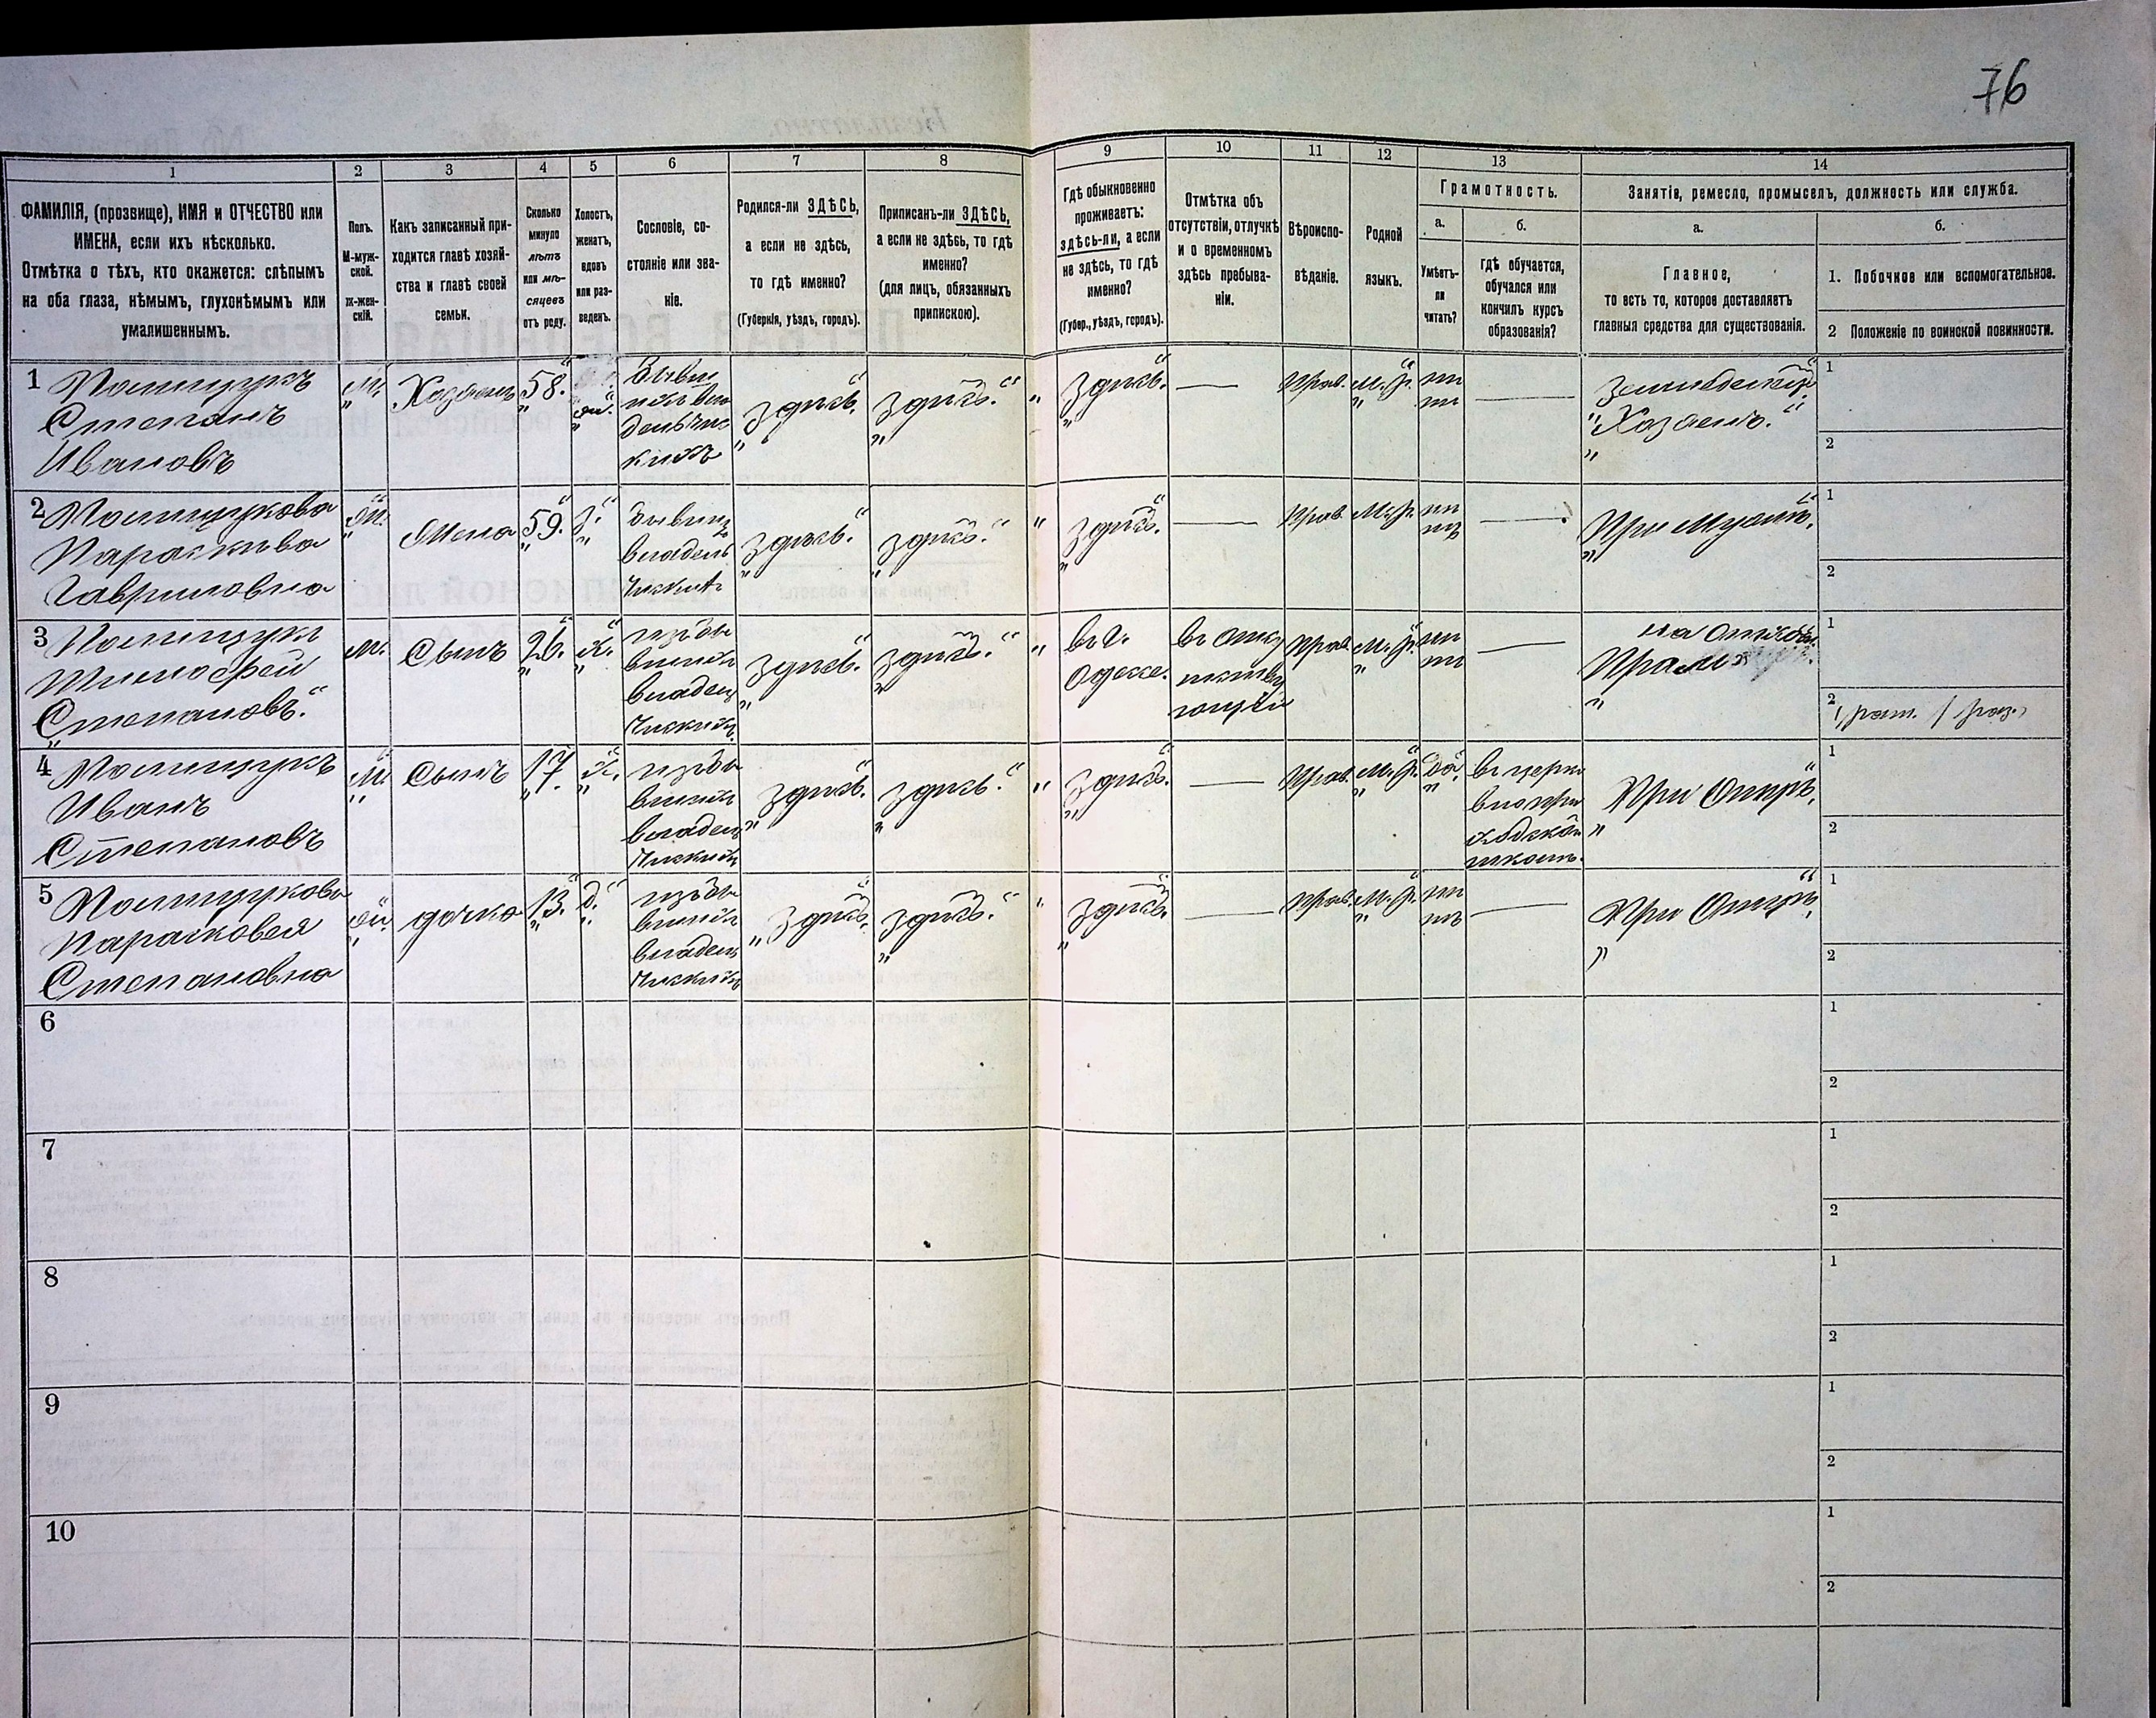 76
1 2 3 4 5 6 7 8 9 10 11 12 13 14
ФАМИЛІЯ, (прозвище), ИМЯ и ОТЧЕСТВО или
ИМЕНА, если ихъ нѣсколько.
Отмѣтка о тѣхъ, кто окажется: слѣпымъ
на оба глаза, нѣмымъ, глухонѣмымъ или
умалишеннымъ.
Полъ.
М-муж-
ской.
Ж-жен-
скій.
Какъ записанный при-
ходится главѣ хозяй-
ства и главѣ своей
семьи.
Сколько
минуло
лѣтъ
или мѣ-
сяцевъ
отъ роду.
Холостъ,
женатъ,
вдовъ
или раз-
веденъ.
Сословіе, со-
стояніе или зва-
ніе.
Родился-ли ЗДѢСЬ,
а если не здѣсь,
то гдѣ именно?
(Губернія, уѣздъ, городъ).
Приписанъ-ли ЗДѢСЬ,
а если не здѣсь, то гдѣ
именно?
(для лицъ, обязанныхъ
припискою).
Гдѣ обыкновенно
проживаетъ:
здѣсь-ли, а если
не здѣсь, то гдѣ
именно?
(Губер., уѣздъ, городъ).
Отмѣтка объ
отсутствіи, отлучкѣ
и о временномъ
здѣсь пребыва-
ніи.
Вѣроиспо-
вѣданіе.
Родной
языкъ.
Грамотность.
а.
Умѣетъ-
ли
читать?
б.
гдѣ обучается,
обучался или
кончилъ курсъ
образованія?
Занятія, ремесло, промыселъ, должность или служба.
а.
Главное,
то есть то, которое доставляетъ
главныя средства для существованія.
б.
1. Побочное или вспомогательное.
2 Положеніе по воинской повинности.
1 Полищукъ
Степанъ
Ивановъ
М.
Хозяинъ
58.
ж.
здѣсь.
здѣсь.
здѣсь.
—
Прав.
М.р.
—
"Хозяинъ."
1
2
2 Полищукова
Параскива
Гавриловна
ж.
Жена
59.
з.
бывш
владѣль
здѣсь.
здѣсь.
здѣсь.
—
Прав.
М.р.
—
При Мужѣ.
1
2
3
Тимофей
Степановъ.
м.
Сынъ
26.
х.
владѣл
здѣсь.
здѣсь.
въ г.
Одессе.
Прав.
М.р.
—
1
2
4 Полищукъ
Иванъ
Степановъ
М.
Сынъ
17.
х.
владѣл
здѣсь.
здѣсь.
здѣсь.
—
Прав.
М.р.
да.
въ церко
вно при
ходской
школѣ.
При Отцѣ.
1
2
5 Полищукова
Парасковея
Степановна
ж.
дочка
13.
д.
владѣл
здѣсь.
здѣсь.
здѣсь.
—
Прав.
М.р.
—
При Отцѣ.
1
2
6
1
2
7
1
2
8
1
2
9
1
2
10
1
2